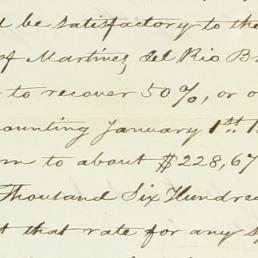 d be satisfactory to the
of Martinez del Rio Br
to recover 50%, or o
counting January 1st 1
m to about $228,67
Thousand Six Hundre
t that rate for any s